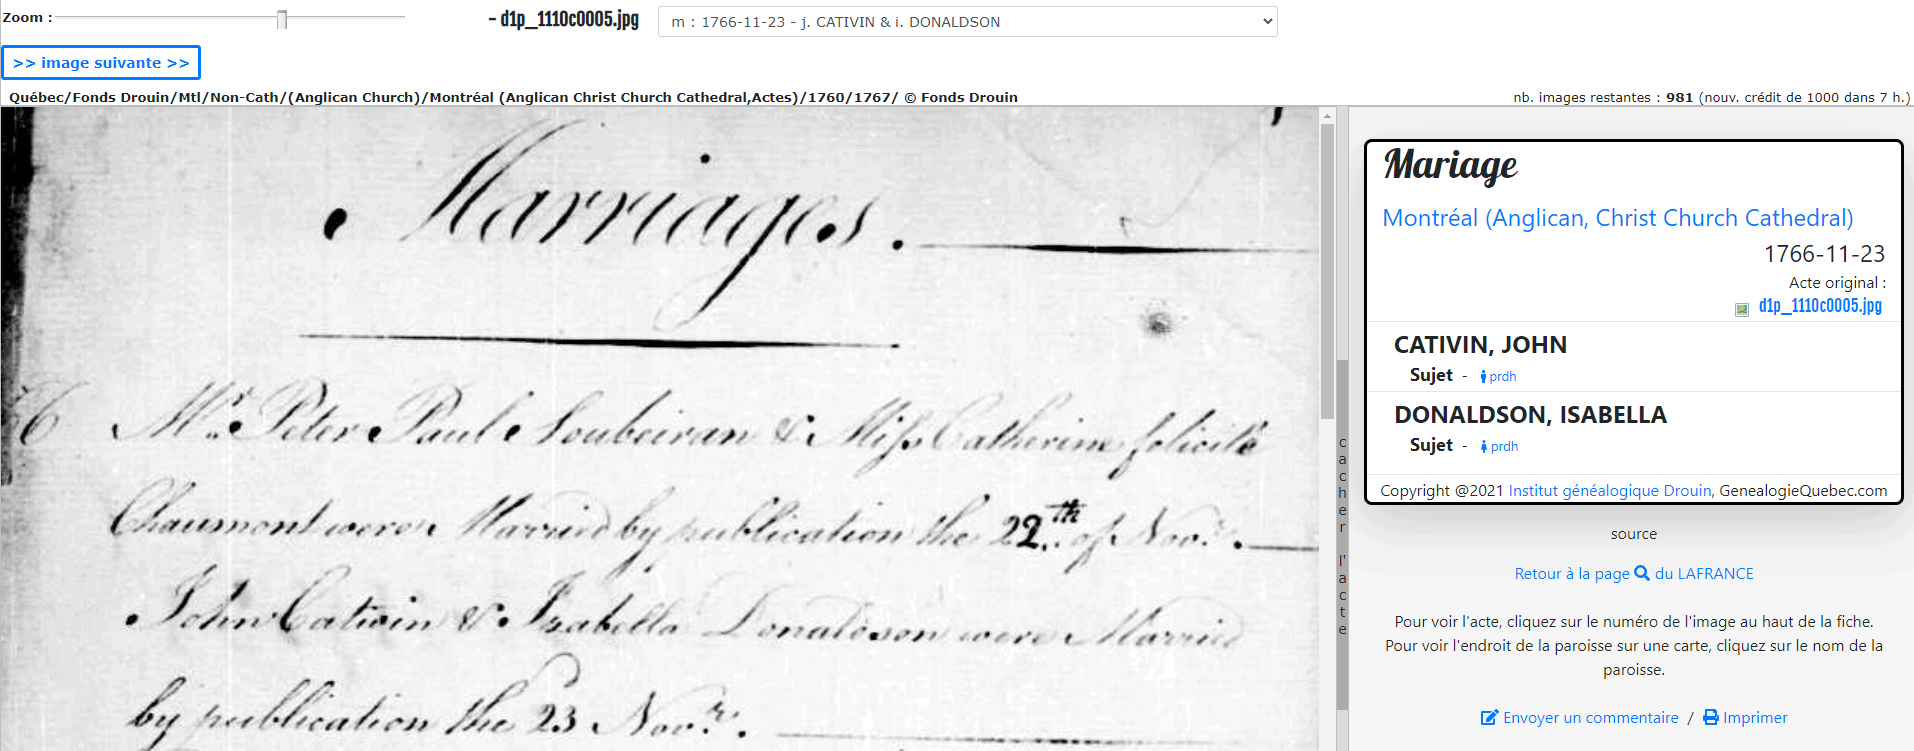 Zoom :
- d1p_1110c0005.jpg
m : 1766-11-23 - j. CATIVIN & i. DONALDSON
>> image suivante >>
Québec/Fonds Drouin/Mtl/Non-Cath/(Anglican Church)/Montréal (Anglican Christ Church Cathedral,Actes)/1760/1767/ © Fonds Drouin
nb. images restantes : 981 (nouv. crédit de 1000 dans 7 h.)
Marriages.
Mr. Peter Paul Soubeiran & Miss Catherine folicité
Chaumont were Married by publication the 22th of Novr.
John Cativin & Izabella Donaldson were Married
by publication the 23 Novr.
cacher l'acte
Mariage
Montréal (Anglican, Christ Church Cathedral)
1766-11-23
Acte original :
d1p_1110c0005.jpg
CATIVIN, JOHN
Sujet - prdh
DONALDSON, ISABELLA
Sujet - prdh
Copyright @2021 Institut généalogique Drouin, GenealogieQuebec.com
source
Retour à la page du LAFRANCE
Pour voir l'acte, cliquez sur le numéro de l'image au haut de la fiche.
Pour voir l'endroit de la paroisse sur une carte, cliquez sur le nom de la
paroisse.
Envoyer un commentaire / Imprimer